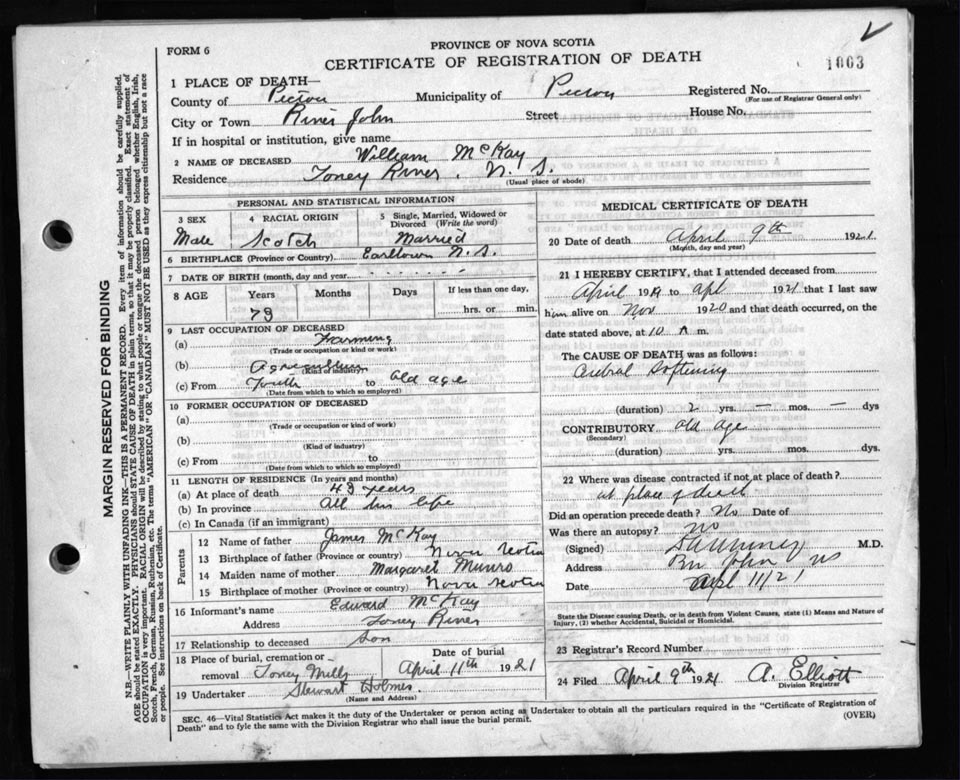 FORM 6
PROVINCE OF NOVA SCOTIA
CERTIFICATE OF REGISTRATION OF DEATH
1003
MARGIN RESERVED FOR BINDING
N.B.—WRITE PLAINLY WITH UNFADING INK—THIS IS A PERMANENT RECORD. Every item of information should be carefully supplied.
AGE should be stated EXACTLY. PHYSICIANS should STATE CAUSE OF DEATH in plain terms, so that it may be properly classified. Exact statement of
OCCUPATION is very important. RACIAL ORIGIN will be described by stating to what people or tongue the deceased person belonged whether English, Irish,
Scotch, French, German, Russian, Ruthenian, etc. The terms "AMERICAN" OR "CANADIAN" MUST NOT BE USED as they express citizenship but not a race
or people. See instructions on back of Certificate.
1 PLACE OF DEATH—
County of Pictou Municipality of Pictou Registered No.
(For use of Registrar General only)
City or Town River John Street House No.
If in hospital or institution, give name
2 NAME OF DECEASED William McKay
Residence Toney River, N. S.
(Usual place of abode)
PERSONAL AND STATISTICAL INFORMATION
3 SEX Male
4 RACIAL ORIGIN Scotch
5 Single, Married, Widowed or Divorced (Write the word) Married
6 BIRTHPLACE (Province or Country) Earltown N.S.
7 DATE OF BIRTH (month, day and year)
8 AGE Years Months Days If less than one day,
hrs. or min.
9 LAST OCCUPATION OF DECEASED
(a) Farming
(Trade or occupation or kind of work)
(b)
(c) From Youth to old age
(Date from which to which so employed)
10 FORMER OCCUPATION OF DECEASED
(a)
(Trade or occupation or kind of work)
(b)
(Kind of industry)
(c) From to
(Date from which to which so employed)
11 LENGTH OF RESIDENCE (In years and months)
(a) At place of death 43 years
(b) In province All his life
(c) In Canada (if an immigrant)
Parents
12 Name of father James McKay
13 Birthplace of father (Province or country) Nova Scotia
14 Maiden name of mother Margaret Munro
15 Birthplace of mother (Province or country) Nova Scotia
16 Informant's name Edward McKay
Address Toney River
17 Relationship to deceased Son
18 Place of burial, cremation or removal Toney Mills
Date of burial April 11th 1921
19 Undertaker Stewart Holmes.
(Name and Address)
MEDICAL CERTIFICATE OF DEATH
20 Date of death April 9th 1921
(Month, day and year)
21 I HEREBY CERTIFY, that I attended deceased from
April 1919 to apl 1921 that I last saw
him alive on Nov 1920 and that death occurred, on the
date stated above, at 10 A m.
The CAUSE OF DEATH was as follows:
Cerebral Softening
(duration) 2 yrs. — mos. — dys
CONTRIBUTORY old age
(Secondary)
(duration) yrs. mos. dys.
22 Where was disease contracted if not at place of death?
at place of death
Did an operation precede death? No Date of
Was there an autopsy? no
(Signed) M.D.
Address Riv John NS
Date Apl 11/21
State the Disease causing Death, or in death from Violent Causes, state (1) Means and Nature of
Injury, (2) whether Accidental, Suicidal or Homicidal.
23 Registrar's Record Number
24 Filed April 9th 1921 A. Elliott
Division Registrar
SEC. 46—Vital Statistics Act makes it the duty of the Undertaker or person acting as Undertaker to obtain all the particulars required in the "Certificate of Registration of
Death" and to fyle the same with the Division Registrar who shall issue the burial permit.
(OVER)